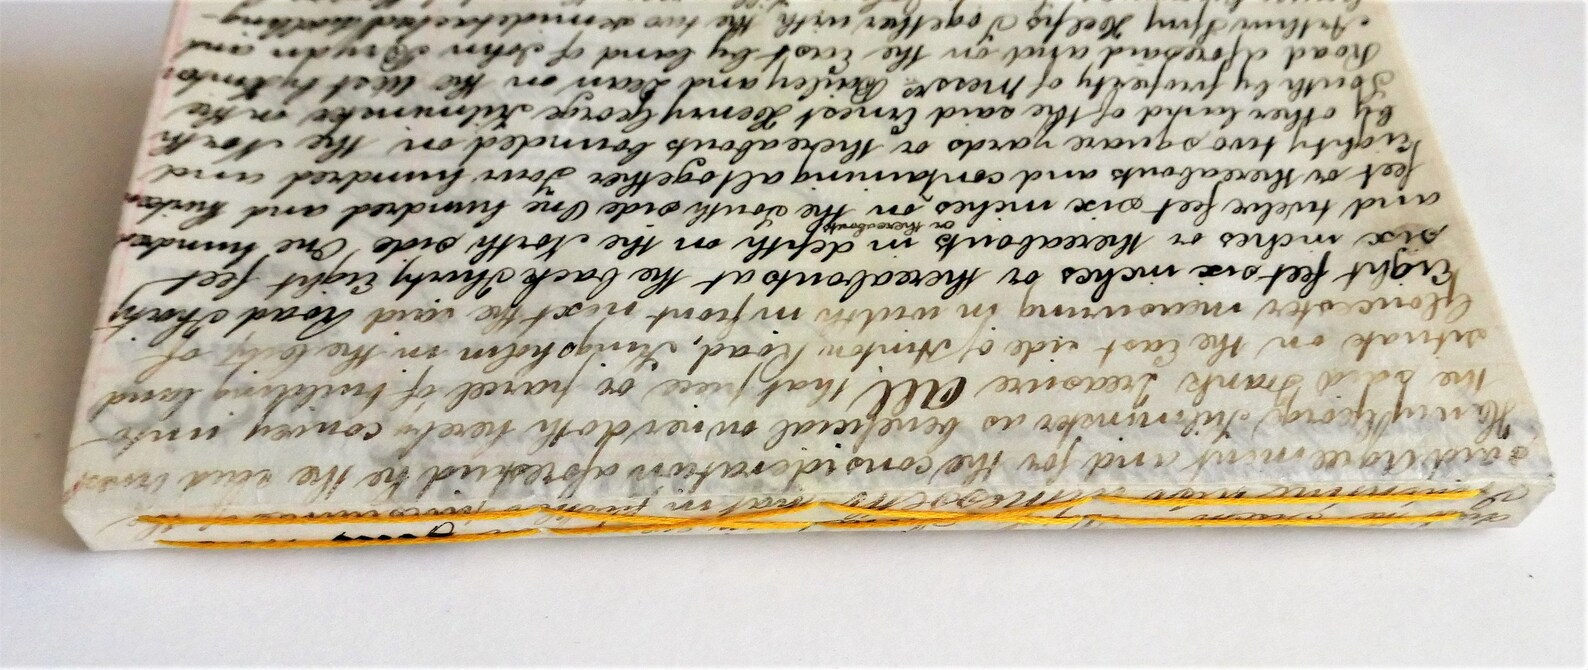 that in further pursuance of the
said Agreement and for the consideration aforesaid he the said Ernest
Henry George Kilminster as beneficial owner doth hereby convey unto
the said Frank Treasure All that piece or parcel of building land
situate on the East side of Hinton Road, Kingsholm in the City of
Gloucester measuring in width in front next the said Road Thirty
Eight feet six inches or thereabouts at the back Thirty Eight feet
six inches or thereabouts in depth on the North side One hundred
or thereabouts
and twelve feet six inches on the South side One hundred and thirteen
feet or thereabouts and containing altogether Four hundred and
Eighty two square yards or thereabouts bounded on the North
by other land of the said Ernest Henry George Kilminster on the
South by property of Messrs Bailey and Dean on the West by Hinton
Road aforesaid and on the East by land of John and
Arthur Together with the two semidetached dwelling-